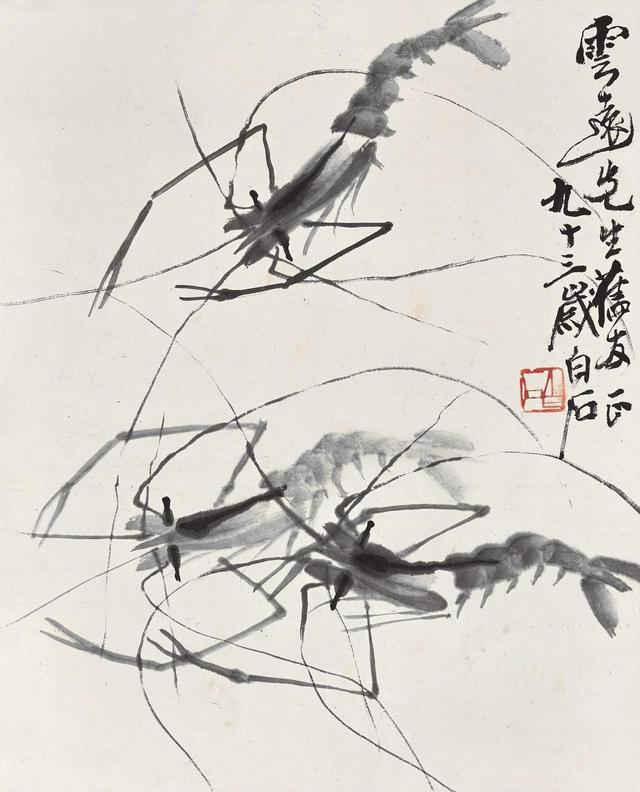 雲遠先生舊友正
九十三歲白石